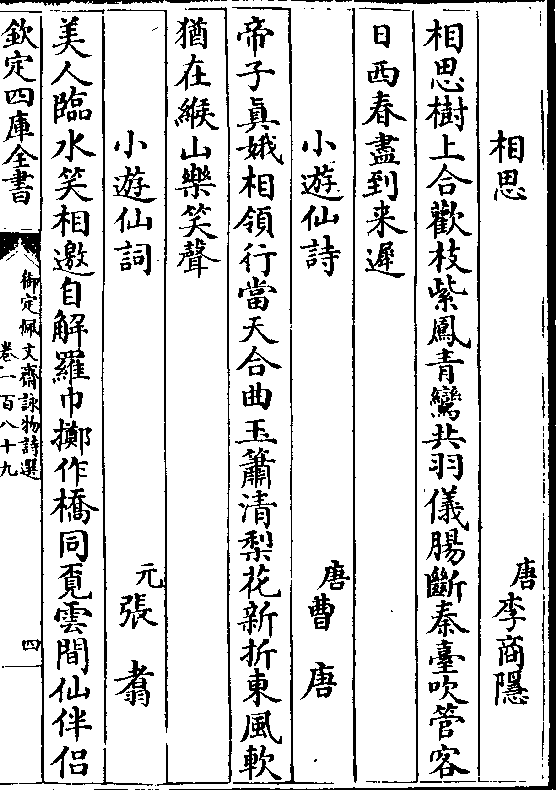 相思　唐李商隱
相思樹上合歡枝紫鳳青鸞共羽儀腸斷秦臺吹管客
日西春盡到来遲
小遊仙詩　唐曹唐
帝子真娥相領行當天合曲玉簫清梨花新折東風軟
猶在緱山樂笑聲
小遊仙詞　元張翥
美人臨水笑相邀自解羅巾擲作橋同覓雲間仙伴侣
欽定四庫全書
御定佩文齋詠物詩選
卷一百八十九
四